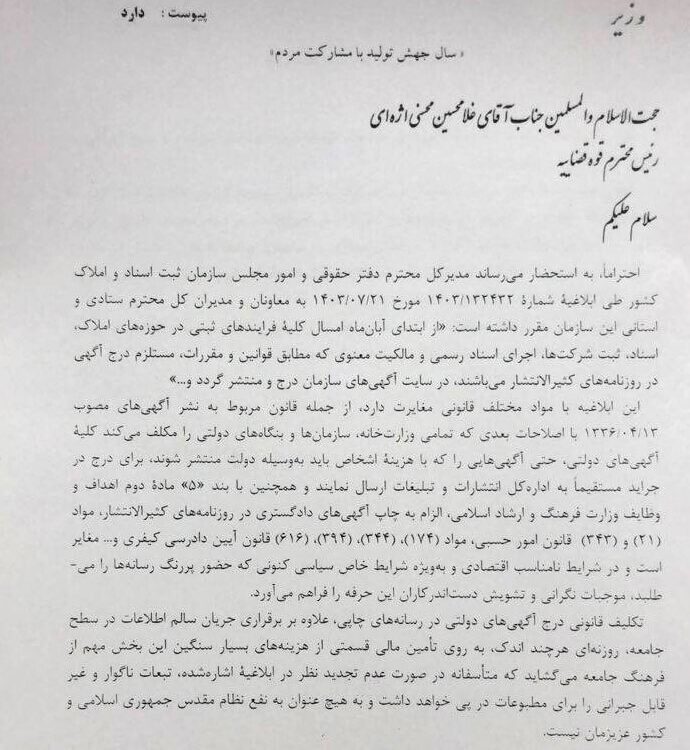 وزیر
پیوست: دارد
«سال جهش تولید با مشارکت مردم»
حجت‌الاسلام والمسلمین جناب آقای غلامحسین محسنی اژه‌ای
رئیس محترم قوه قضاییه
سلام علیکم
احتراماً، به استحضار می‌رساند مدیرکل محترم دفتر حقوقی و امور مجلس سازمان ثبت اسناد و املاک
کشور طی ابلاغیهٔ شمارهٔ ۱۴۰۳/۱۳۲۴۳۲ مورخ ۱۴۰۳/۰۷/۲۱ به معاونان و مدیران کل محترم ستادی و
استانی این سازمان مقرر داشته است: «از ابتدای آبان‌ماه امسال کلیهٔ فرایندهای ثبتی در حوزه‌های املاک،
اسناد، ثبت شرکت‌ها، اجرای اسناد رسمی و مالکیت معنوی که مطابق قوانین و مقررات، مستلزم درج آگهی
در روزنامه‌های کثیرالانتشار می‌باشند، در سایت آگهی‌های سازمان درج و منتشر گردد و...»
این ابلاغیه با مواد مختلف قانونی مغایرت دارد، از جمله قانون مربوط به نشر آگهی‌های مصوب
۱۳۳۶/۰۴/۱۳ با اصلاحات بعدی که تمامی وزارت‌خانه، سازمان‌ها و بنگاه‌های دولتی را مکلف می‌کند کلیهٔ
آگهی‌های دولتی، حتی آگهی‌هایی را که با هزینهٔ اشخاص باید به‌وسیله دولت منتشر شوند، برای درج در
جراید مستقیماً به اداره‌کل انتشارات و تبلیغات ارسال نمایند و همچنین با بند «۵» مادهٔ دوم اهداف و
وظایف وزارت فرهنگ و ارشاد اسلامی، الزام به چاپ آگهی‌های دادگستری در روزنامه‌های کثیرالانتشار، مواد
(۲۱) و (۳۴۳) قانون امور حسبی، مواد (۱۷۴)، (۳۴۴)، (۳۹۴)، (۶۱۶) قانون آیین دادرسی کیفری و... مغایر
است و در شرایط نامناسب اقتصادی و به‌ویژه شرایط خاص سیاسی کنونی که حضور پررنگ رسانه‌ها را می-
طلبد، موجبات نگرانی و تشویش دست‌اندرکاران این حرفه را فراهم می‌آورد.
تکلیف قانونی درج آگهی‌های دولتی در رسانه‌های چاپی، علاوه بر برقراری جریان سالم اطلاعات در سطح
جامعه، روزنه‌ای هرچند اندک، به روی تأمین مالی قسمتی از هزینه‌های بسیار سنگین این بخش مهم از
فرهنگ جامعه می‌گشاید که متأسفانه در صورت عدم تجدید نظر در ابلاغیهٔ اشاره‌شده، تبعات ناگوار و غیر
قابل جبرانی را برای مطبوعات در پی خواهد داشت و به هیچ عنوان به نفع نظام مقدس جمهوری اسلامی و
کشور عزیزمان نیست.